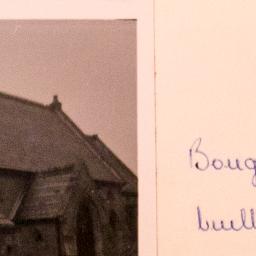 Boug
built